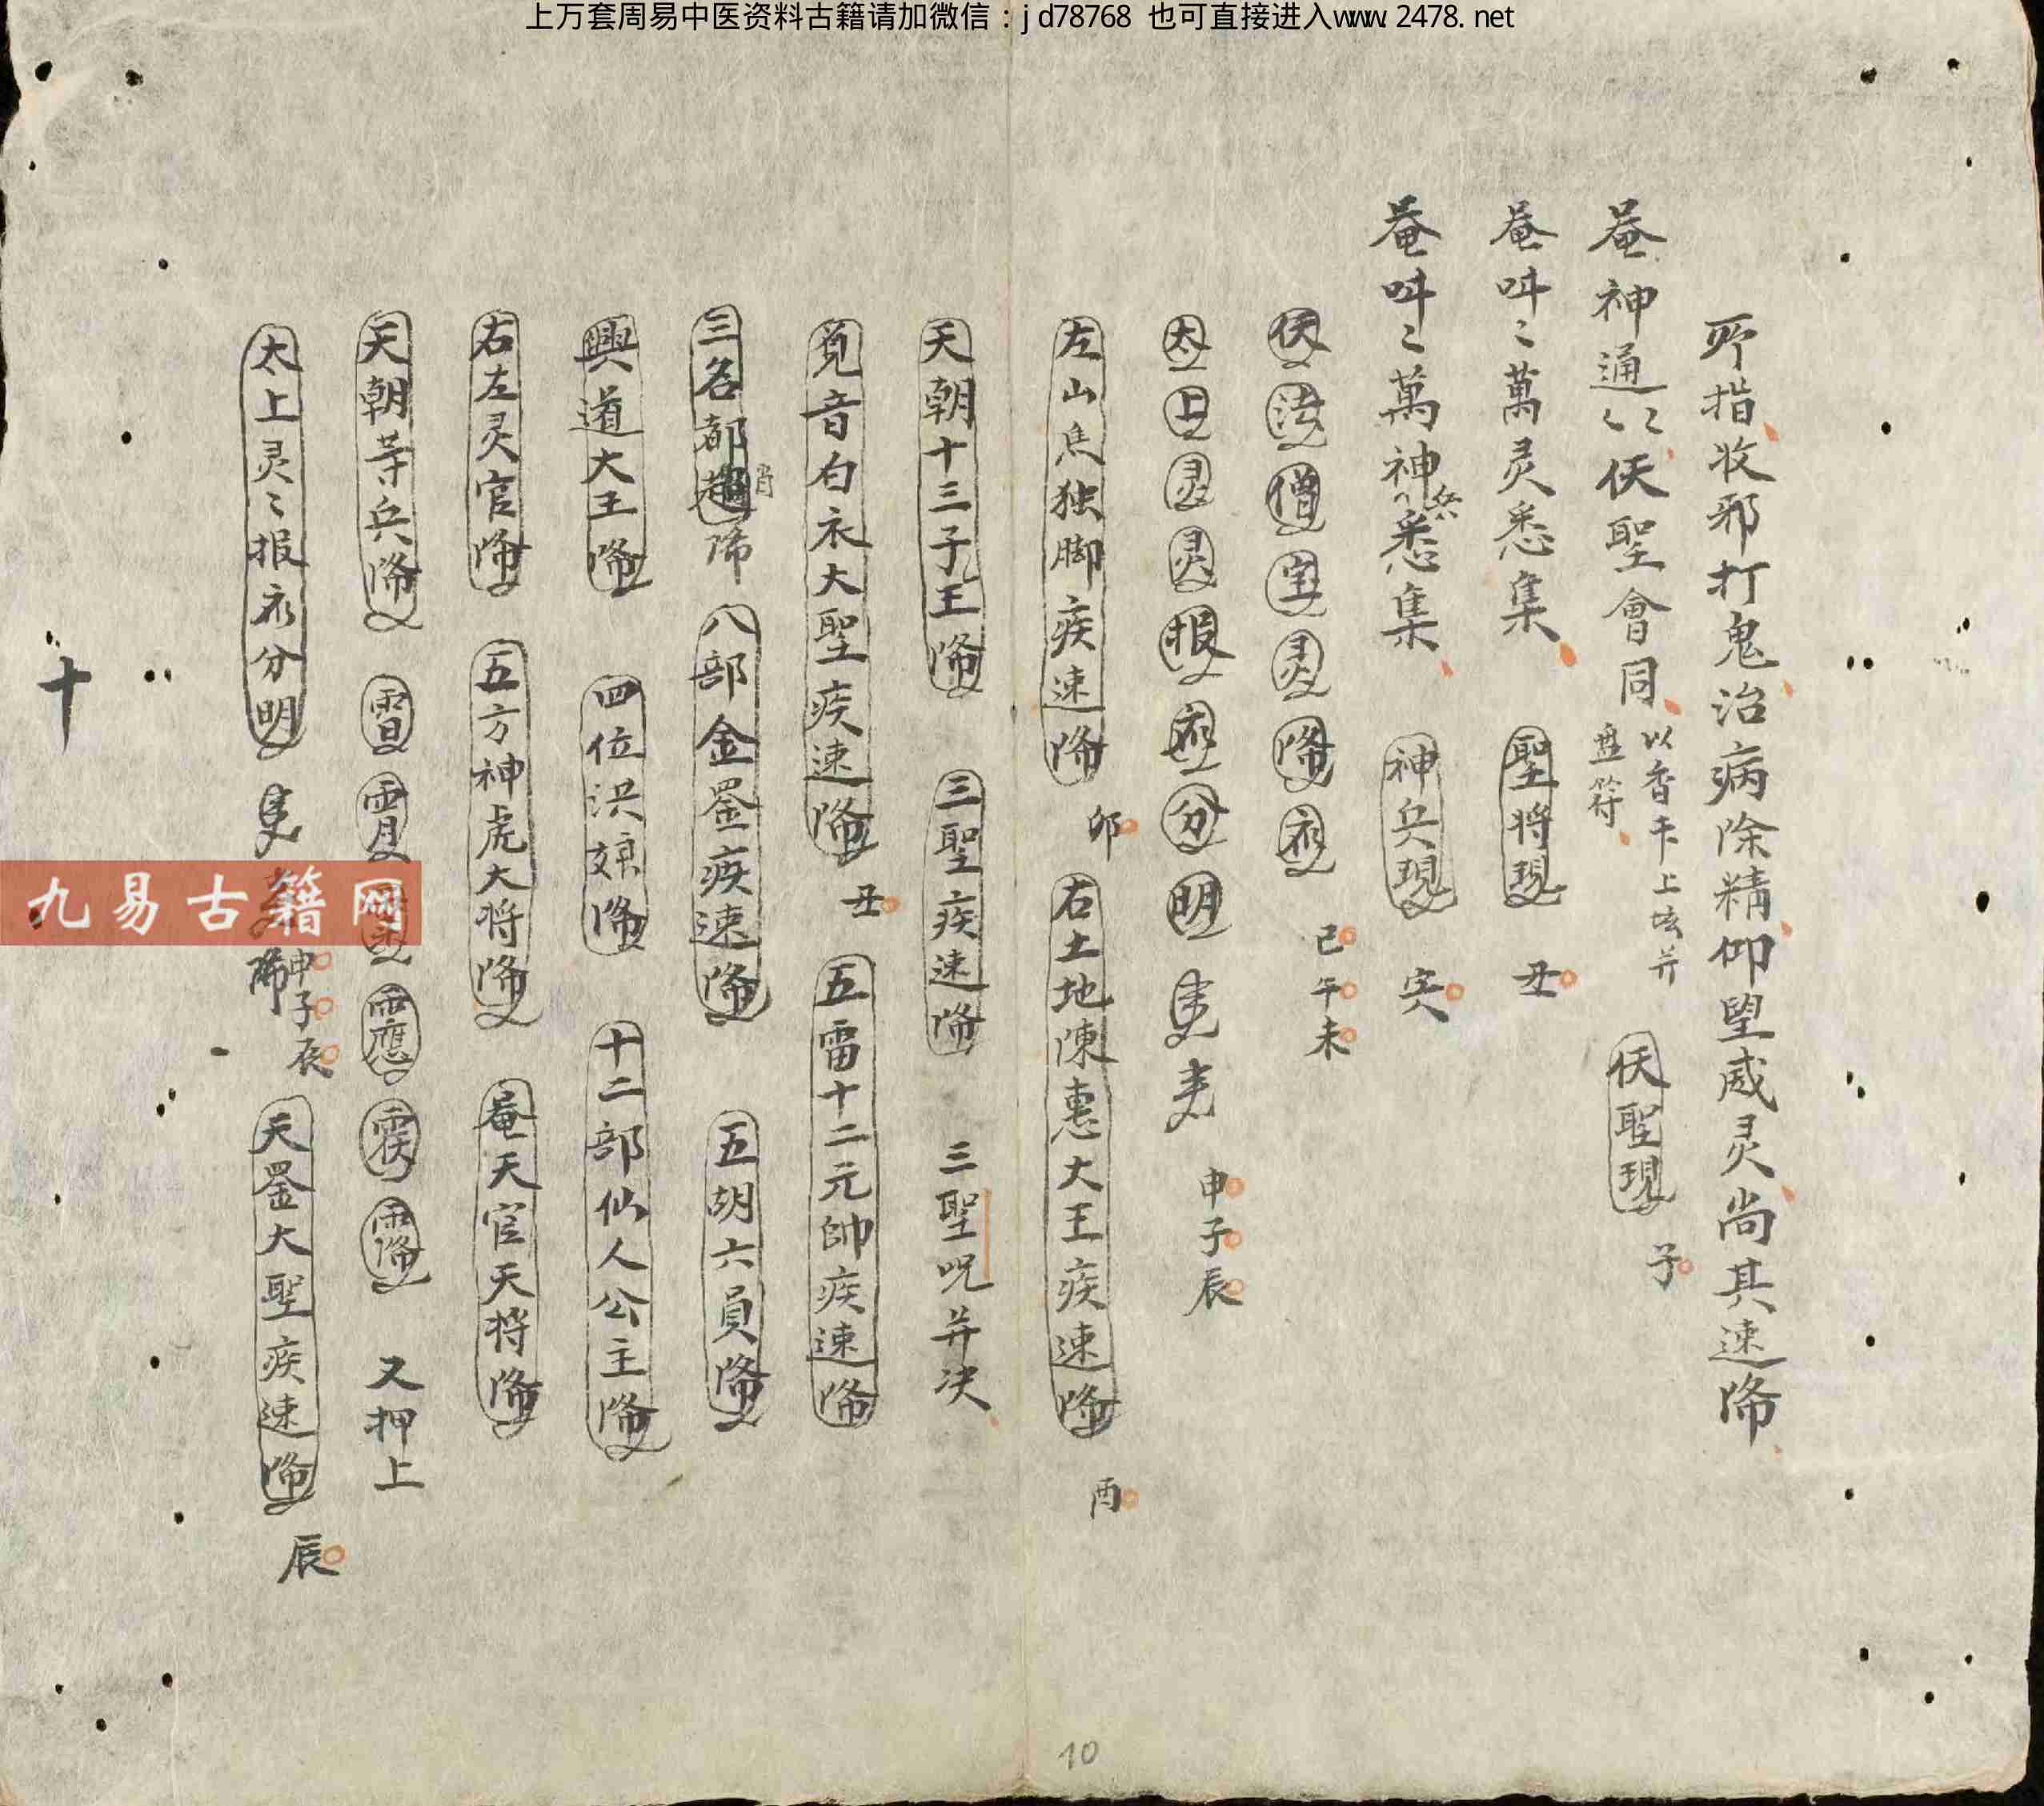 上万套周易中医资料古籍请加微信：jd78768 也可直接进入www.2478.net
所指收邪打鬼治病除精仰望威灵尚其速降
神通〻〻伏聖會同 以香卞上 并 符 伏聖現 子
叫〻萬灵悉集 聖将現 丑
叫〻萬神〻兵悉集 神兵現 寅
伏法僧宝灵降 巳午未
太上灵灵报 分明 申子辰
左山 独脚疾速降 卯 右土地陳惠大王疾速降 酉
天朝十三子王降 三聖疾速降 三聖呪并决
音白衣大聖疾速降 丑 五雷十二元帥疾速降
三名都 降 八部金罡疾速降 五胡六員降
興道大王降 四位洪 降 十二部仙人公主降
右左灵官降 五方神虎大将降 天官天将降
天朝等兵降 又押上
太上灵〻报 分明 降 申子辰 天罡大聖疾速降 辰
十
九易古籍网
10